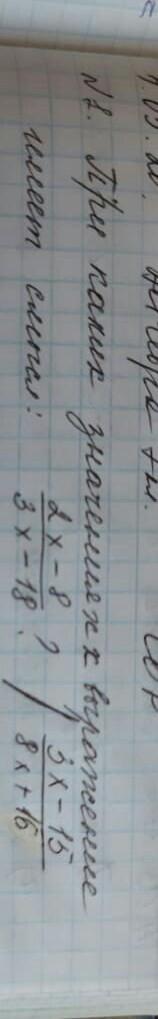 № 2. При каких значениях х выражение
имеет смысл: (2x - 8)/(3x - 18) ? (3x - 15)/(8x + 16)